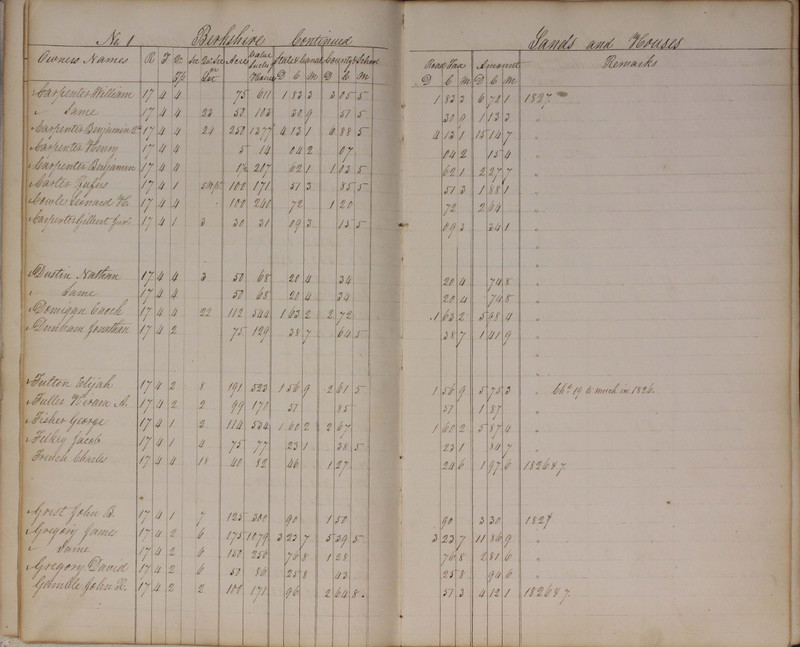 No 1 Berkshire Continued Lands and Houses
Owners Names R T Qr Sec Acres Value State & Canal County & School Road Tax Amount Remarks
D C M D C M D C M D C M
Carpenter William 17 4 4 75 611 1 83 3 3 05 5 1 83 3 6 72 1 1827
" Same 17 4 4 23 50 103 30 9 51 5 30 9 1 13 3 "
Carpenter Benjamin 17 4 4 24 250 1377 4 13 1 6 88 5 4 13 1 15 14 7 "
Carpenter Henry 17 4 4 5 14 04 2 07 04 2 15 4 "
Carpenter Benjamin 17 4 4 207 62 1 1 03 5 62 1 2 27 7 "
Carter Rufus 17 4 1 100 171 51 3 85 5 51 3 1 88 1 "
Cowles Leonard H. 17 4 4 100 240 72 1 20 72 2 64 "
Carpenter Gilbert Jun. 17 4 1 3 30 31 09 3 15 5 09 3 34 1 "
Dustin Nathan 17 4 4 3 50 68 20 4 34 20 4 74 8 "
" Same 17 4 4 50 68 20 4 34 20 4 74 8 "
Domigan Enoch 17 4 4 22 112 544 1 63 2 2 72 1 63 2 5 98 4 "
Dunham Jonathan 17 4 2 75 129 38 7 64 5 38 7 1 41 9 "
Fulton Elijah 17 4 2 8 191 523 1 56 9 2 61 5 1 56 9 5 75 3 " Chd 19 cts much in 1826.
Fuller Hiram A. 17 4 2 2 99 170 51 85 51 1 87 "
Fisher George 17 4 1 2 114 534 1 60 2 2 67 1 60 2 5 87 4 "
Filkey Jacob 17 4 1 4 75 77 23 1 38 5 23 1 84 7 "
French Charles 17 4 4 18 40 82 46 1 27 24 6 1 97 6 1826 & 7
Grist John B. 17 4 1 7 125 300 90 1 50 90 3 30 1827
Gregory James 17 4 2 6 175 1079 3 23 7 5 39 5 3 23 7 11 86 9 "
" Same 17 4 2 6 150 256 76 8 1 28 76 8 2 81 6 "
Gregory David 17 4 2 6 51 86 25 8 43 25 8 94 6 "
Gamble John R. 17 4 2 2 100 171 96 2 64 8 51 3 4 12 1 1826 & 7.